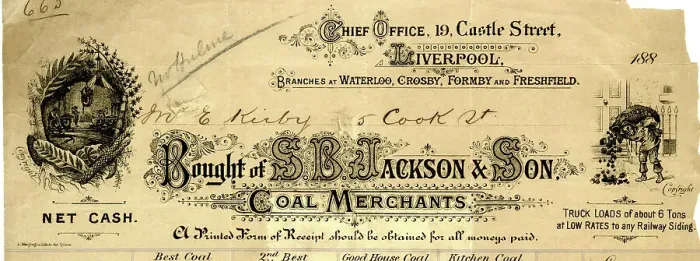 665
Chief Office, 19, Castle Street,
Liverpool,
188
Mr Hulme
Branches at Waterloo, Crosby, Formby and Freshfield.
Mr E Kirby 5 Cook St.
Bought of S. B. Jackson & Son,
Coal Merchants.
Copyright
Copyright
NET CASH.
TRUCK LOADS of about 6 Tons
at LOW RATES to any Railway Siding.
A Printed Form of Receipt should be obtained for all moneys paid.
Best Coal 2nd Best Good House Coal Kitchen Coal